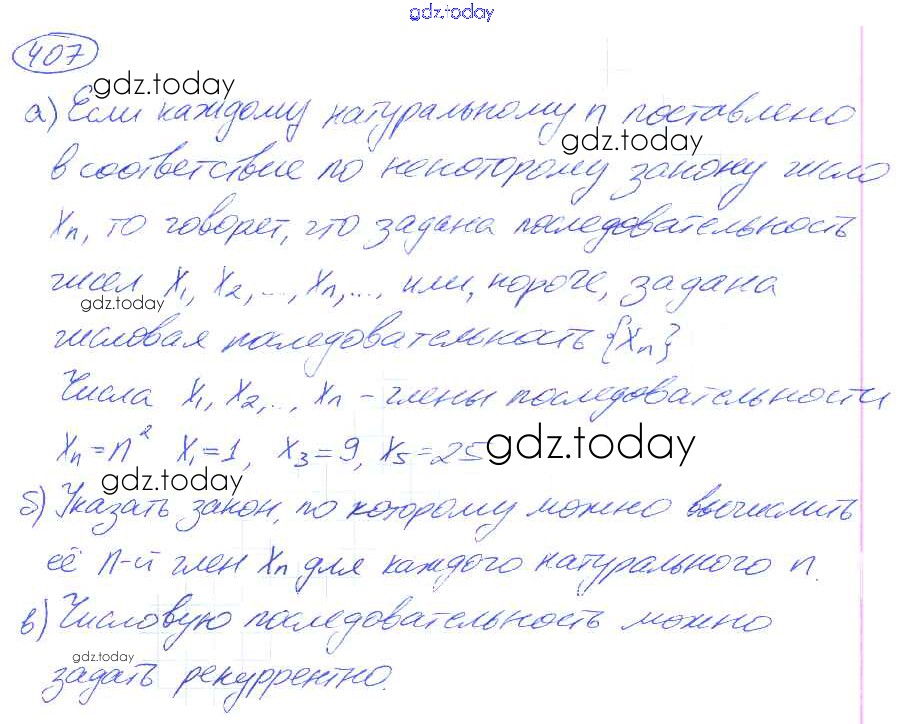 gdz.today
407
gdz.today
а) Если каждому натуральному n поставлено
gdz.today
в соответствие по некоторому закону число
xn, то говорет, что задана последовательность
чисел x1, x2, ..., xn, ... или, короче, задана
gdz.today
числовая последовательность {xn}
Числа x1, x2, ..., xn – члены последовательности
xn = n² x1 = 1, x3 = 9, x5 = 25
gdz.today
gdz.today
б) Указать закон, по которому можно вычислить
её n-й член xn для каждого натурального n.
в) Числовую последовательность можно
gdz.today
задать рекуррентно.